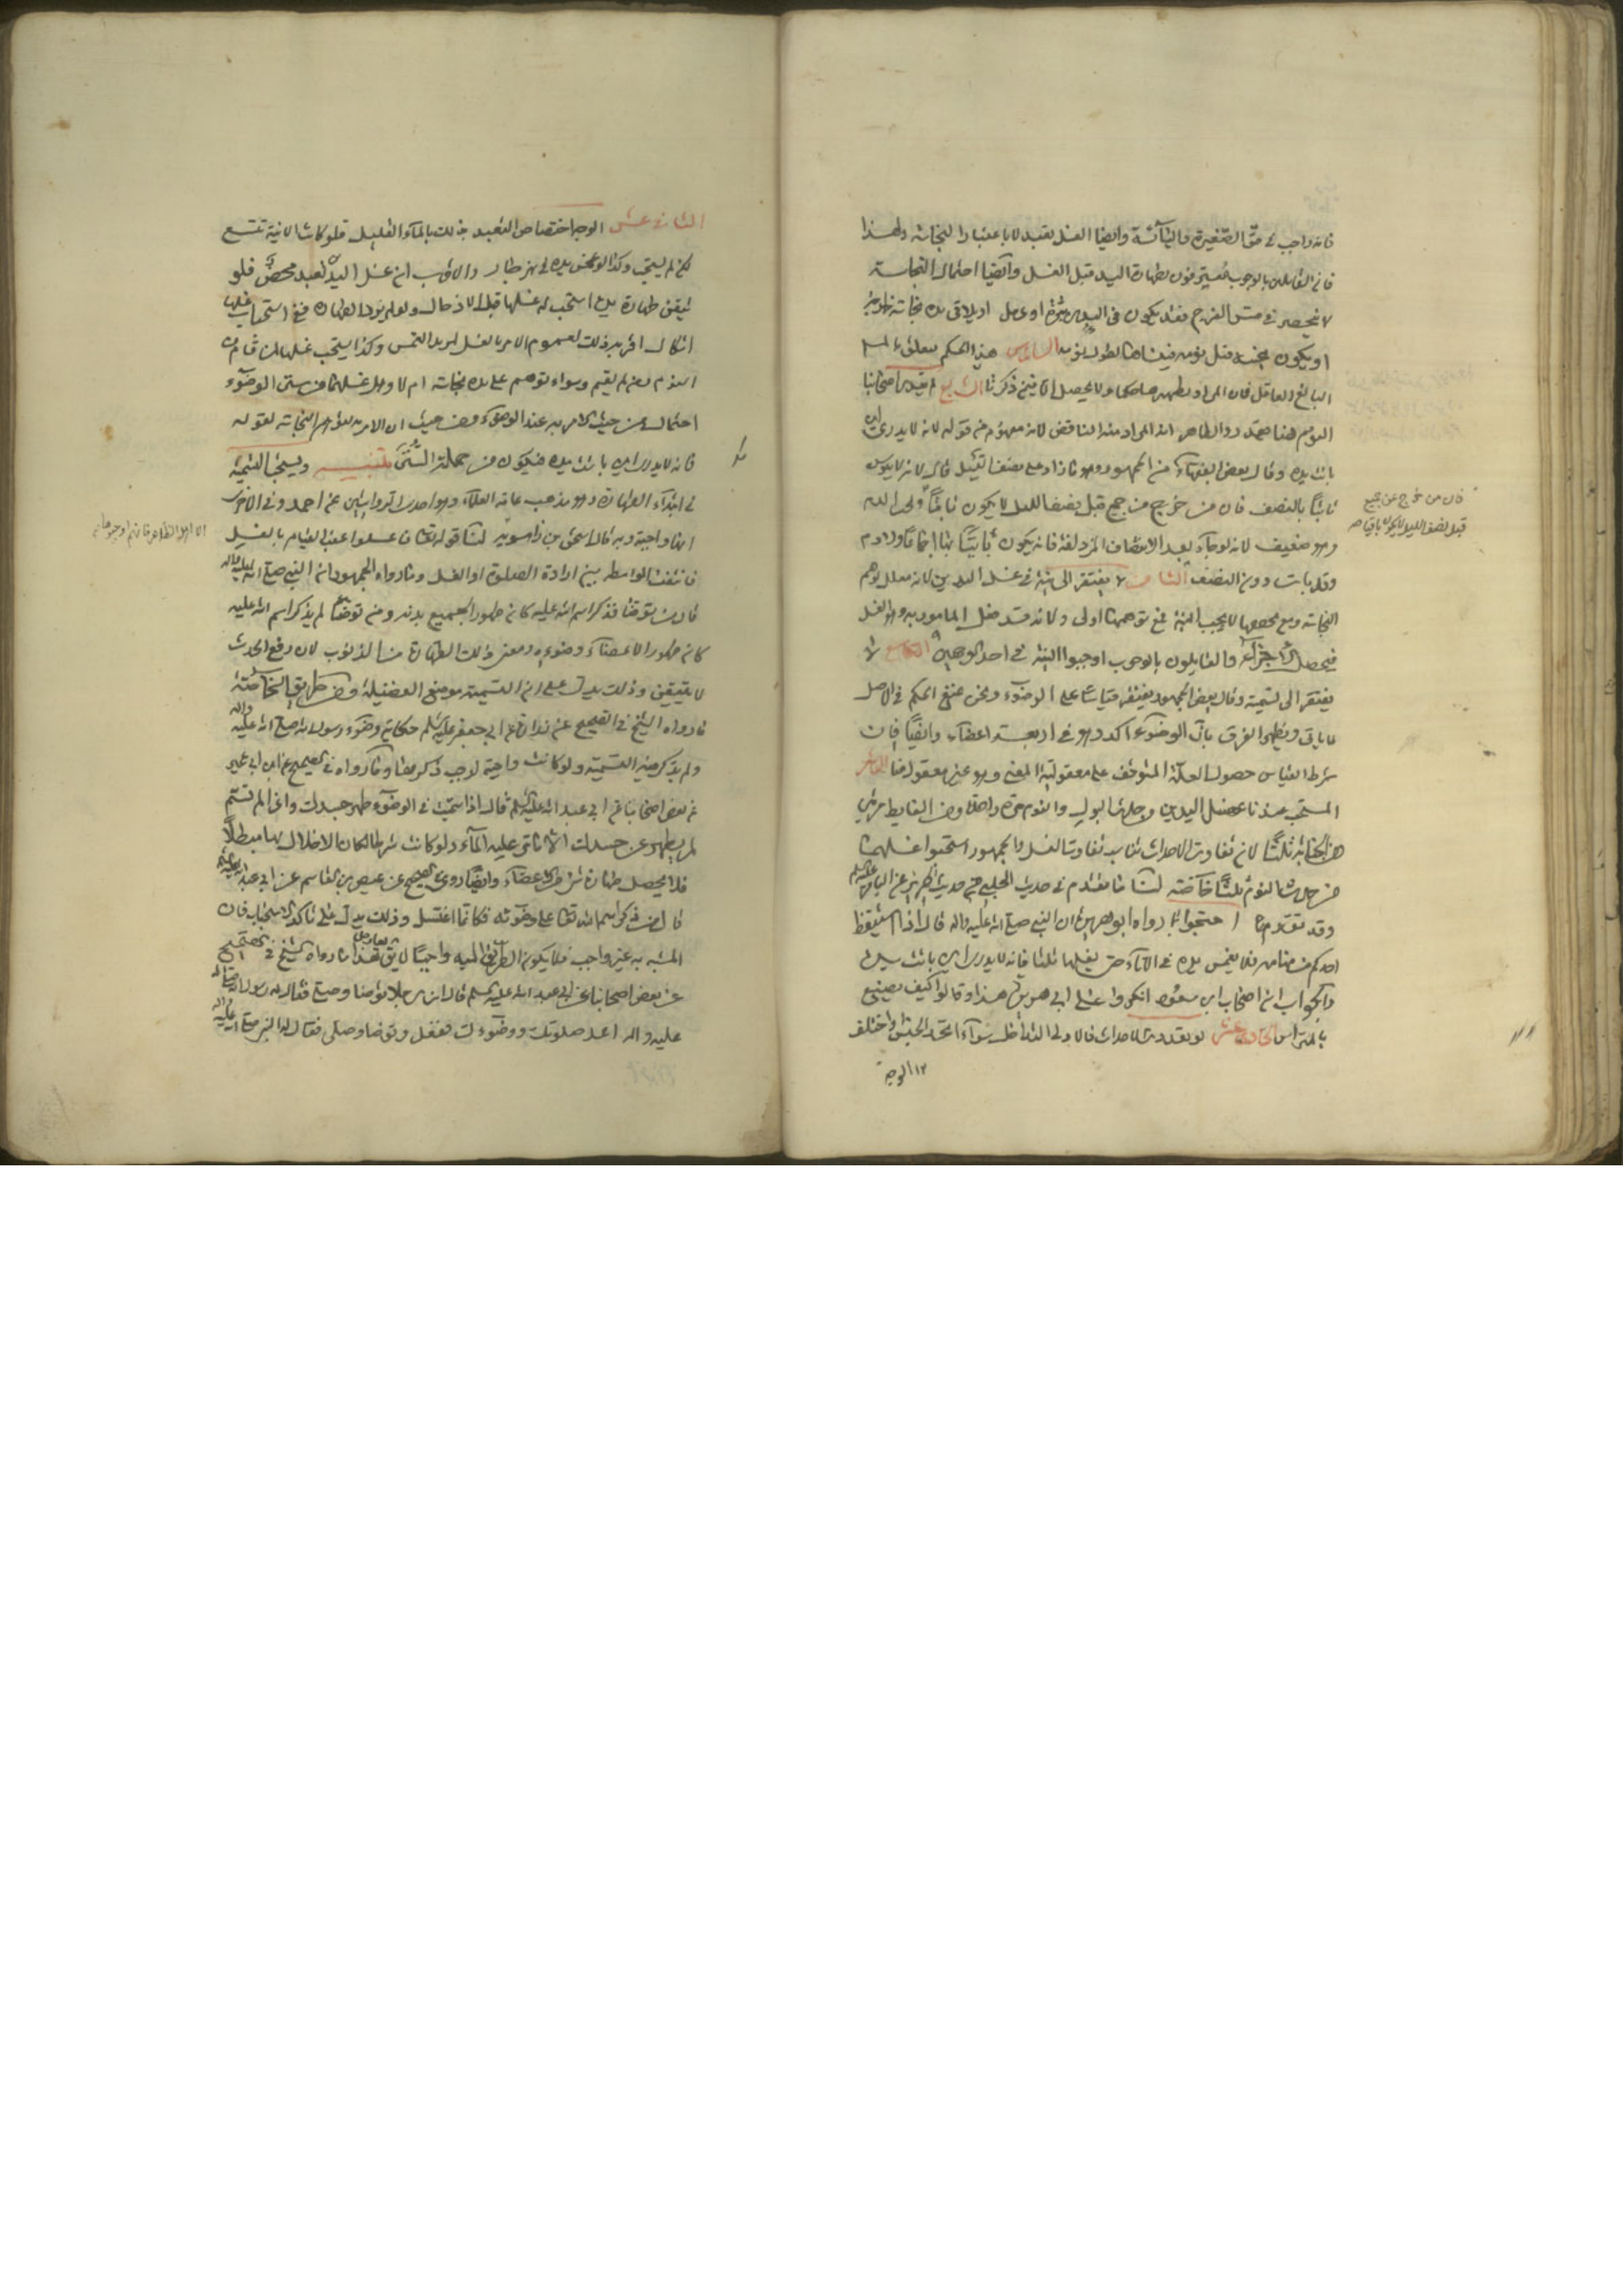 فانه واجب في حق الصغيرة واليائسة وايضا الغسل تعبد لا باعتبار النجاسة ولهذا
فان القائلين بالوجوب يعتبرون بطهارة اليد قبل الغسل وايضا احتمال النجاسة
لا ينحصر في مس الفرج فقد يكون في البدن بثرة او دمل او يلاقي يده نجاسة خارجة
او يكون نجسة قبل نومه فينساها لطول نومه السادس هذا الحكم يتعلق بالمسلم
البالغ العاقل فان المراد تطهيرها حكما ولا يحصل الا فيمن ذكرنا السابع لم يقيد اصحابنا
النوم هنا بمقدار والظاهر ان المراد منه الناقض لانه مفهوم من قوله لانه لا يدري اين
باتت يده وقال بعض الفقهاء من الجمهور وهو ما زاد على نصف الليل قال لانه لا يكون
بائتا بالنصف فان من خرج من جمع قبل نصف الليل لا يكون بائتا ولهذا لزمه
وهو ضعيف لانه لو جاء بعد الانتصاف المزدلفة فانه يكون بائتا بها اجماعا ولا دم
وقد بات دون النصف الثامن لا يفتقر الى نية في غسل اليدين لانه معلل بوهم
النجاسة ومع تحققها لا يجب النية فمع توهمها اولى ولانه قد فعل المامور به وهو الغسل
فيحصل الاجزاء والقايلون بالوجوب اوجبوا النية في احد الوجهين التاسع لا
يفتقر الى تسمية وقال بعض الجمهور يفتقر قياسا على الوضوء ونحن نمنع الحكم في الاصل
ما ياتي ويظهر الفرق بان الوضوء آكد وهو في اربعة اعضاء وايضا فان
شرط القياس حصول العلة المتوقف على معقولية المعنى وهو غير معقول هنا العاشر
المستحب عندنا غسل اليدين من حدث البول والنوم مرة واحدة ومن الغايط مرتين
من الجنابة ثلثا لان تفاوت الاحداث تناسب تفاوت الغسل والجمهور استحبوا غسلهما
من حدث النوم ثلثا خاصة لنا ما تقدم في حديث الحلبي وفي حديث حريز عن الباقر عليه السلم
وقد تقدم احتجوا بما رواه ابو هريرة ان النبي صلى الله عليه واله قال اذا استيقظ
احدكم من منامه فلا يغمس يده في الاناء حتى يغسلها ثلثا فانه لا يدري اين باتت يده
والجواب ان اصحاب ابن مسعود انكروا على ابي هريرة هذا وقالوا كيف يصنع
بالمهراس الحادي عشر لو تعددت الاحداث فالاولى التداخل سواء اتحد الجنس او اختلف
١٢ الوجه
فان من خرج عن جمع
قبل نصف الليل لا يكون بائتا
الثاني عشر الوجه اختصاص التعبد بذلك بالماء القليل فلو كانت الانية تتسع
لكر لم يستحب وكذا لو غمس يده في نهر جار والاقرب ان غسل اليد تعبد محض فلو
تيقن طهارة يده استحب له غسلها قبل الادخال ولو لم يرد الطهارة ففي استحباب غسلها
اشكال اقربه ذلك لعموم الامر بالغسل لمريد الغمس وكذا يستحب غسلها لمن قام من
النوم ومن لم يقم وسواء توهم على يده نجاسة ام لا وهل غسلهما من سنن الوضوء
احتمال من حيث الامر به عند الوضوء ومن حيث ان الامر به لتوهم النجاسة لقوله
فانه لا يدري اين باتت يده فيكون من جملة السنن تنبيه ويستحب التسمية
في ابتداء الطهارة وهو مذهب عامة العلماء وهو احدى الروايتين عن احمد وفي الاخرى
انها واجبة وبه قال اسحق بن راهويه لنا قوله تعالى فاغسلوا عقب القيام بالغسل
فانتفت الواسطة بين ارادة الصلوة او الغسل وما رواه الجمهور ان النبي صلى الله عليه واله
قال من توضا فذكر اسم الله عليه كان طهورا لجميع بدنه ومن توضا لم يذكر اسم الله عليه
كان طهورا لاعضاء وضوءه ومعنى ذلك الطهارة من الذنوب لان رفع الحدث
لا يتبعض وذلك يدل على ان التسمية موضع الفضيلة ومن طريق الخاصة
ما رواه الشيخ في الصحيح عن زرارة عن ابي جعفر عليه السلم حكاية وضوء رسول الله صلى الله عليه واله
ولم يذكر فيه التسمية ولو كانت واجبة لوجب ذكرها وما رواه في الصحيح عن ابن ابي عمير
عن بعض اصحابنا عن ابي عبد الله عليه السلم قال اذا سميت في الوضوء طهر جسدك واذا لم تسم
لم يطهر من جسدك الا ما مر عليه الماء ولو كانت شرطا لكان الاخلال بها مبطلا
فلا يحصل طهارة شيء من الاعضاء وايضا روى في الصحيح عن عيص بن القاسم عن ابي عبد الله عليه السلم
قال من ذكر اسم الله تعالى على وضوئه فكانما اغتسل وذلك يدل على تاكد الاستحباب فان
المشبه به غير واجب فلا يكون الطريق اليه واجبا لا يق يعارض هذا ما رواه الشيخ في الصحيح
عن بعض اصحابنا عن ابي عبد الله عليه السلم قال ان رجلا توضا وصلى فقال له رسول الله صلى الله
عليه واله اعد صلوتك ووضوءك ففعل وتوضا وصلى فقال له النبي صلى الله عليه واله
الا اهل الظاهر فانهم اوجبوها